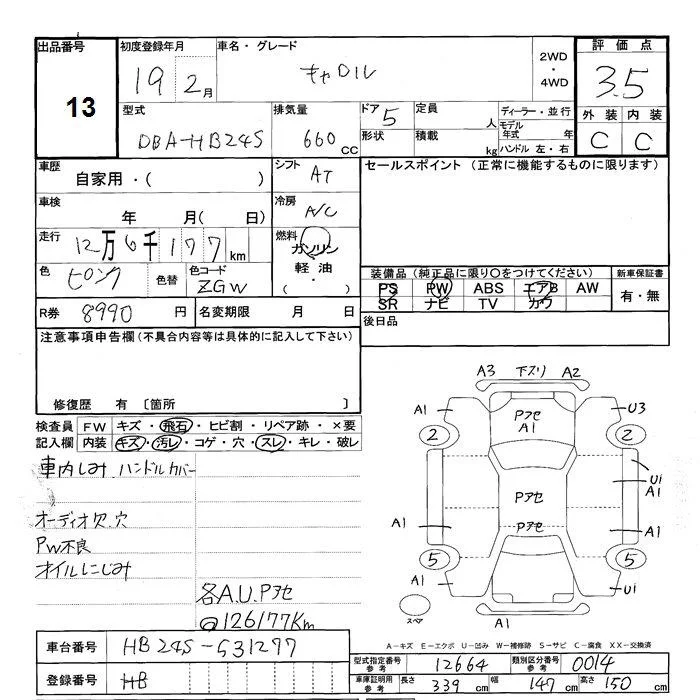 出品番号
13
初度登録年月
19 2月
車名・グレード
キャロル
2WD
・
4WD
評価点
3.5
型式
DBA-HB24S
排気量
660 CC
ドア 5
形状
定員 人
積載 kg
ディーラー・並行
モデル年式 年
ハンドル 左・右
外装 内装
C C
車歴
自家用・( )
シフト
AT
セールスポイント (正常に機能するものに限ります)
車検
年 月( 日)
冷房
A/C
走行
12万6千177 km
燃料
ガソリン
軽油・
( )
色
ピンク
色替
色コード
ZGW
装備品 (純正品に限り○をつけてください)
新車保証書
PS PW ABS エアB AW
SR ナビ TV カワ
有・無
R券 8990 円
名変期限 月 日
後日品
注意事項申告欄 (不具合内容等は具体的に記入して下さい)
修復歴 有 〔箇所 〕
検査員
記入欄
FW キズ・飛石・ヒビ割・リペア跡・×要
内装 キズ・汚レ・コゲ・穴・スレ・キレ・破レ
車内しみ、ハンドルカバー
オーディオ欠.穴
PW不良
オイルにじみ
各A.U.Pアセ
@126177Km
A3 下スリ A2
A1 U3
Pアセ
A1
2 2
Pアセ
U1
A1
A1 Pアセ A1
5 5
A1 U1
スペア
A1
A-キズ E-エクボ U-凹み W-補修跡 S-サビ C-腐食 XX-交換済
車台番号 HB24S-531297
登録番号 HB
型式指定番号
参考
12664
類別区分番号
参考
0014
車庫証明用
参考
長さ 339 cm 幅 147 cm 高さ 150 cm